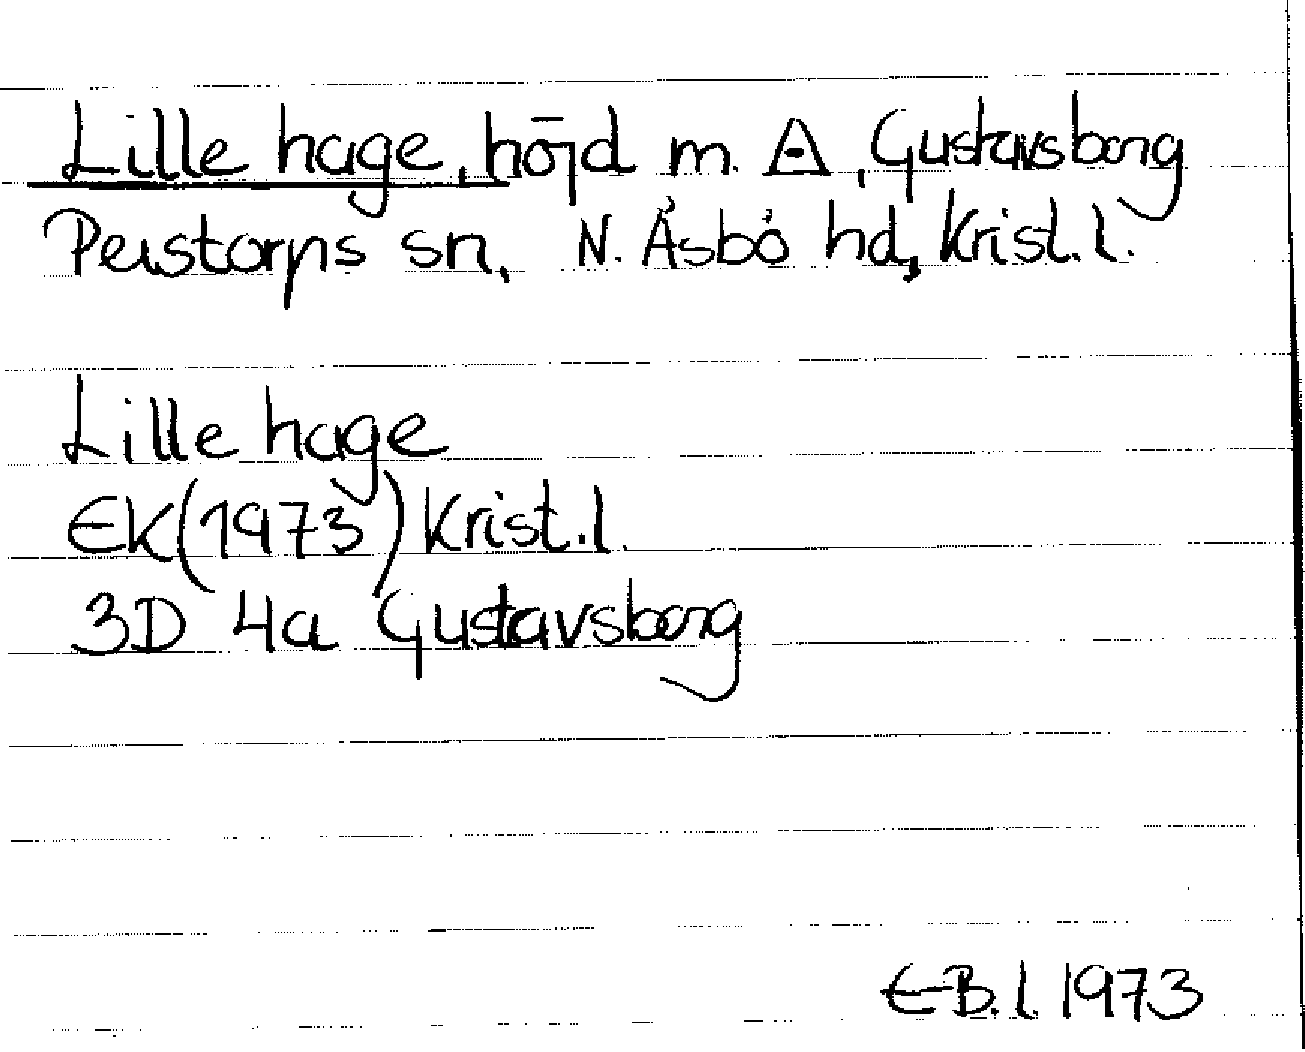 Lille hage, höjd m. △, Gustavsborg
Perstorps sn, N. Åsbo hd, Krist. l.
Lille hage
EK (1973) Krist. l.
3D 4a Gustavsborg
E-B. l. 1973